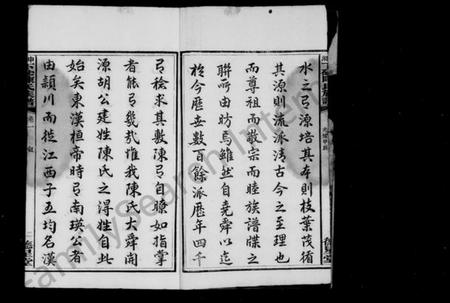 水之弓源培其本則枝葉茂循
其源則流派清古今之至理也
而尊祖而敬宗而睦族譜牒之
聯所由昉焉雖然自堯舜以迄
於今歷世數百餘派歷年四千
弓稔求其數陳弓自瞭如指掌
者能弓幾哉惟我陳氏大舜開
源胡公建姓陳氏之得姓自此
始矣東漢桓帝時弓南瑛公者
由潁川而徙江西子五均名漢
FamilySearch Intern